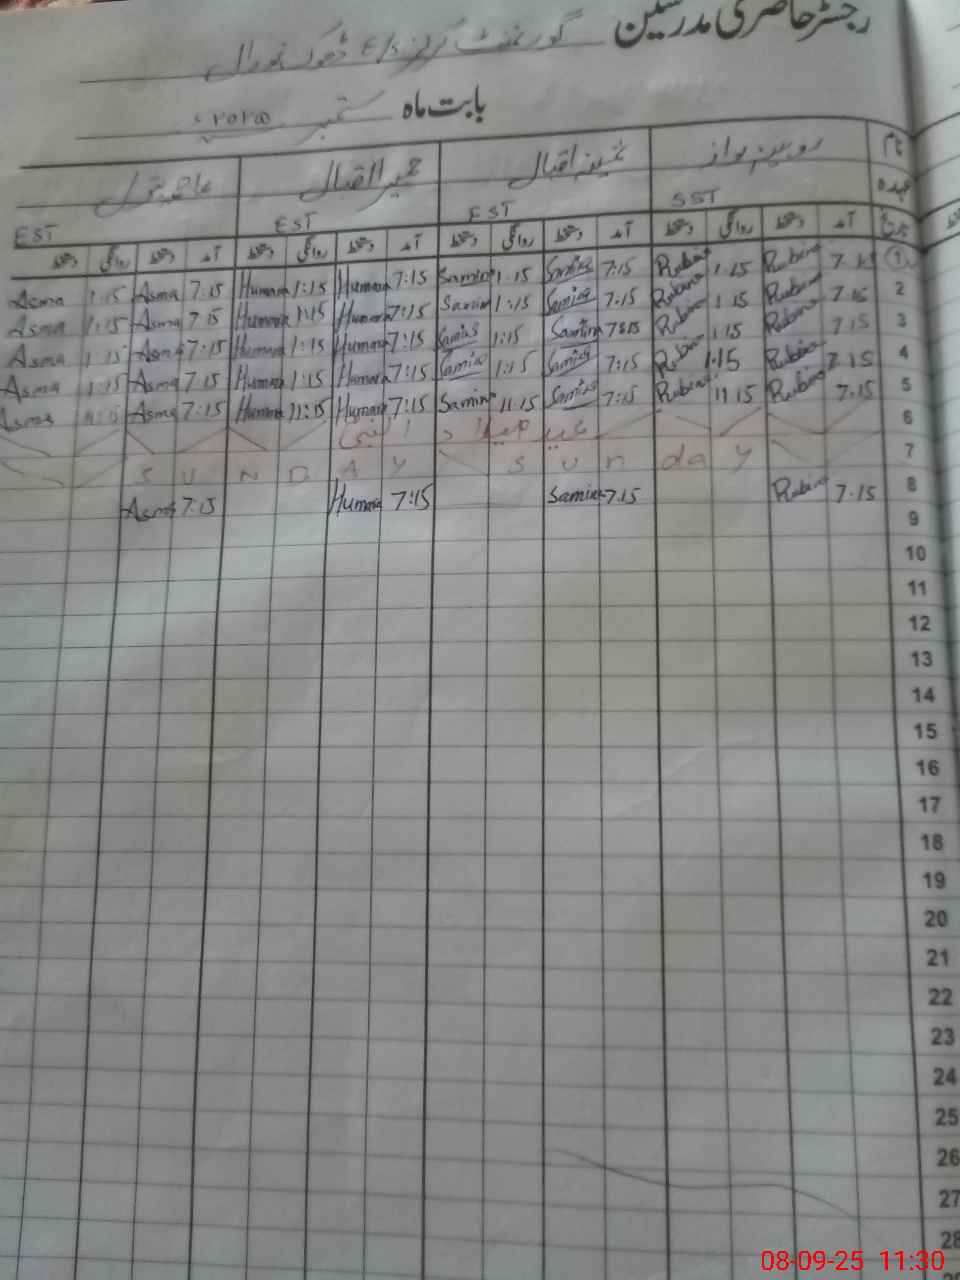 رجسٹر حاضری مدرسین گورنمنٹ گرلز E/S ڈھوک
بابت ماہ ستمبر ۲۰۲۵ء
نام روبینہ نواز ثمینہ اقبال حمیرا اقبال
عہدہ SST EST EST EST
تاریخ آمد دستخط روانگی دستخط آمد دستخط روانگی دستخط آمد دستخط روانگی دستخط آمد دستخط روانگی دستخط
1 7.15 Rubina 1.15 Rubina 7:15 Samina 1.15 Samina 7:15 Humara 1:15 Humara 7:15 Asma 1:15 Asma
2 7.15 Rubina 1.15 Rubina 7.15 Samina 1:15 Samina 7:15 Humara 1:15 Humara 7:15 Asma 1:15 Asma
3 7.15 Rubina 1.15 Rubina Samina 1:15 Samina 7:15 Humara 1:15 Humara 7:15 Asma 1:15 Asma
4 7.15 Rubina 1.15 Rubina 7:15 Samina 1:15 Samina 7:15 Humara 1:15 Humara 7.15 Asma 1:15 Asma
5 7.15 Rubina 11.15 Rubina 7:15 Samina 11.15 Samina 7:15 Humara 11:15 Humara 7:15 Asma Asma
6 عید میلاد النبی
7 SUNDAY Sunday
8 7.15 Rubina 7.15 Samina 7:15 Humara 7:15 Asma
9
10
11
12
13
14
15
16
17
18
19
20
21
22
23
24
25
26
27
28
08-09-25 11:30